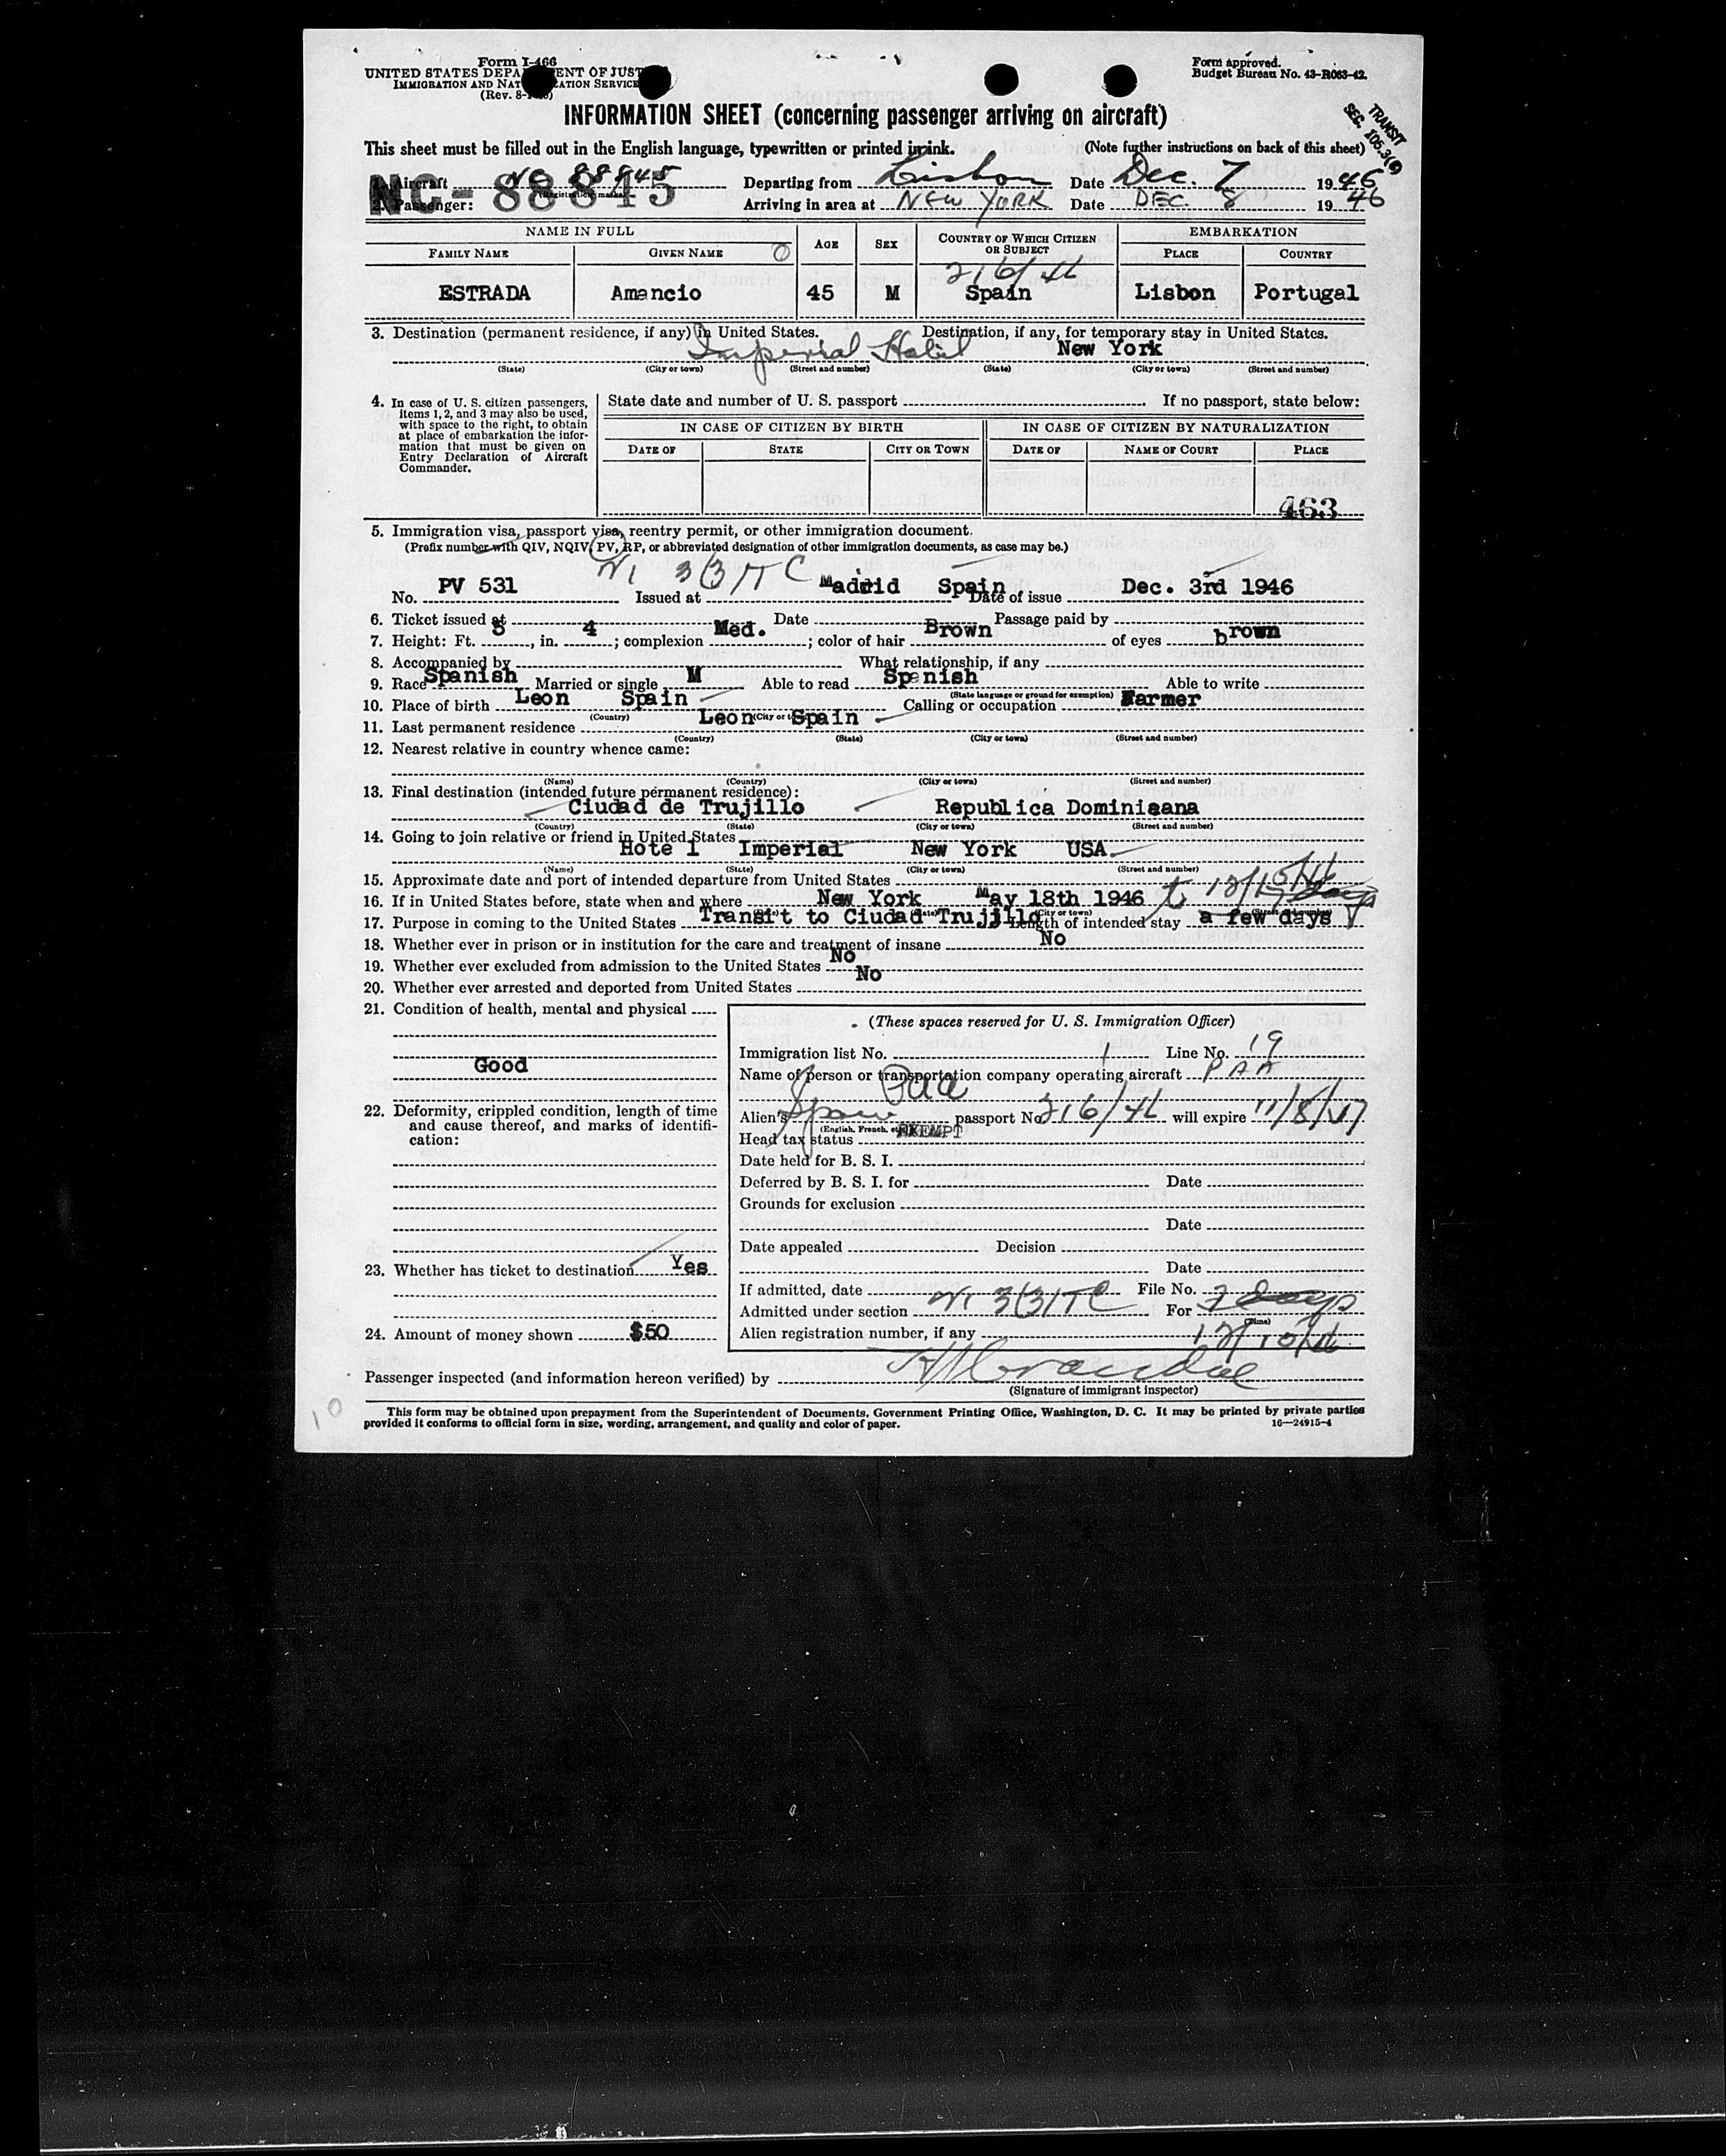 Form I-466
UNITED STATES DEPA ENT OF JUST
IMMIGRATION AND NAT ATION SERVICE
(Rev. 8-
Form approved.
Budget Bureau No. 43-R063-42.
TRANSIT
SEC. 105.3(
INFORMATION SHEET (concerning passenger arriving on aircraft)
This sheet must be filled out in the English language, typewritten or printed in ink. (Note further instructions on back of this sheet)
Aircraft NC 88845 Departing from Lisbon Date Dec. 7 1946
NC-88845
2. Passenger: Arriving in area at NEW YORK Date DEC 8 1946
NAME IN FULL AGE SEX COUNTRY OF WHICH CITIZEN OR SUBJECT EMBARKATION
FAMILY NAME GIVEN NAME PLACE COUNTRY
216/46
ESTRADA Amancio 45 M Spain Lisbon Portugal
3. Destination (permanent residence, if any) in United States. Destination, if any, for temporary stay in United States.
Imperial Hotel New York
(State) (City or town) (Street and number) (State) (City or town) (Street and number)
4. In case of U. S. citizen passengers, items 1, 2, and 3 may also be used, with space to the right, to obtain at place of embarkation the information that must be given on Entry Declaration of Aircraft Commander.
State date and number of U. S. passport If no passport, state below:
IN CASE OF CITIZEN BY BIRTH IN CASE OF CITIZEN BY NATURALIZATION
DATE OF STATE CITY OR TOWN DATE OF NAME OF COURT PLACE
463
5. Immigration visa, passport visa, reentry permit, or other immigration document.
(Prefix number with QIV, NQIV, PV, RP, or abbreviated designation of other immigration documents, as case may be.)
3(3)TC
No. PV 531 Issued at Madrid Spain Date of issue Dec. 3rd 1946
6. Ticket issued at Date Passage paid by
7. Height: Ft. 5, in. 4; complexion Med.; color of hair Brown of eyes brown
8. Accompanied by What relationship, if any
9. Race Spanish Married or single M Able to read Spenish Able to write
(State language or ground for exemption)
10. Place of birth Leon Spain Calling or occupation Farmer
(Country) (City or t
11. Last permanent residence Leon Spain
(Country) (State) (City or town) (Street and number)
12. Nearest relative in country whence came:
(Name) (Country) (City or town) (Street and number)
13. Final destination (intended future permanent residence):
Ciudad de Trujillo Republica Dominicana
(Country) (State) (City or town) (Street and number)
14. Going to join relative or friend in United States
Hote l Imperial New York USA
(Name) (State) (City or town) (Street and number)
15. Approximate date and port of intended departure from United States
16. If in United States before, state when and where New York May 18th 1946
17. Purpose in coming to the United States Transit to Ciudad Trujillo Length of intended stay a few days
18. Whether ever in prison or in institution for the care and treatment of insane No
19. Whether ever excluded from admission to the United States No
20. Whether ever arrested and deported from United States No
21. Condition of health, mental and physical
Good
22. Deformity, crippled condition, length of time and cause thereof, and marks of identification:
23. Whether has ticket to destination Yes
24. Amount of money shown $50
(These spaces reserved for U. S. Immigration Officer)
Immigration list No. 1 Line No. 19
Name of person or transportation company operating aircraft PAA
Paa
Alien's Span passport No. 216/46 will expire 11/8/47
(English, French, etc.)
Head tax status EXEMPT
Date held for B. S. I.
Deferred by B. S. I. for Date
Grounds for exclusion
Date
Date appealed Decision
Date
If admitted, date File No.
Admitted under section 3(3)TC For 7 days
(Time)
Alien registration number, if any
Passenger inspected (and information hereon verified) by
(Signature of immigrant inspector)
This form may be obtained upon prepayment from the Superintendent of Documents, Government Printing Office, Washington, D. C. It may be printed by private parties
provided it conforms to official form in size, wording, arrangement, and quality and color of paper. 16—24915-4
10